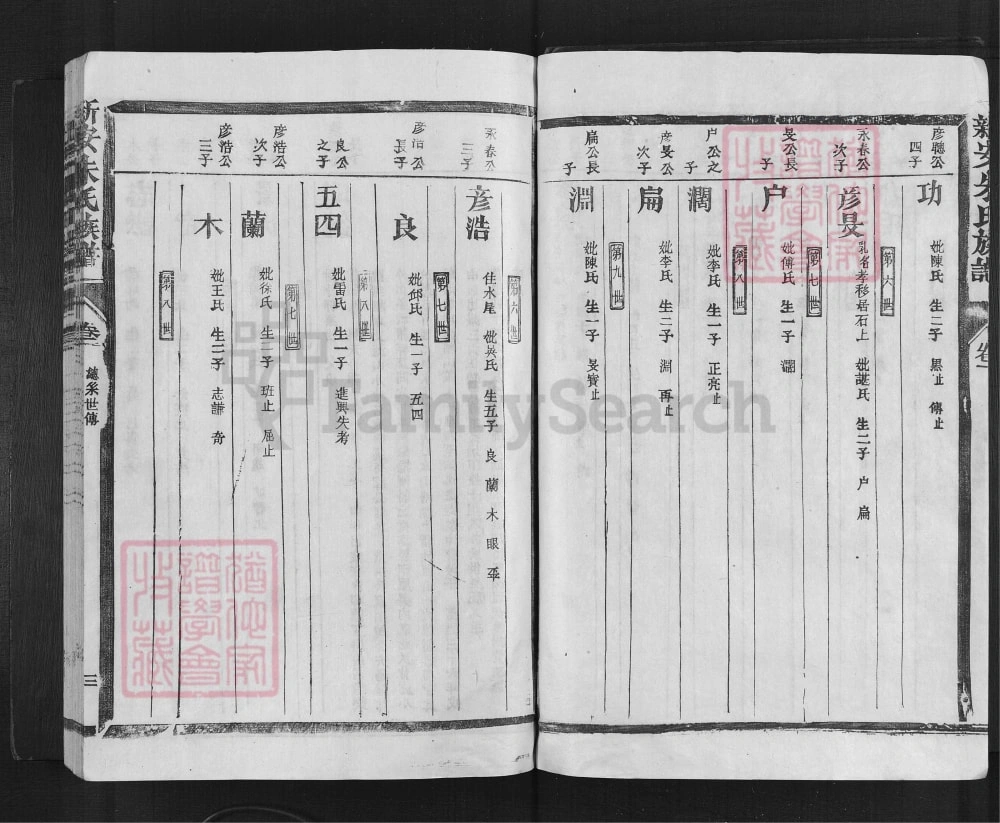 彥聰公四子
功
妣陳氏 生二子 黑止 傳止
第六世
永春公次子
彥旻
乳名孝移居石上 妣諶氏 生二子 户 扁
第七世
旻公長子
户
妣傅氏 生一子 濶
第八世
户公之子
濶
妣李氏 生一子 正亮止
彥旻公次子
扁
妣李氏 生二子 淵 再止
第九世
扁公長子
淵
妣陳氏 生一子 旻寶止
第六世
永春公三子
彥浩
住水尾 妣吳氏 生五子 良 蘭 木 眼
第七世
彥浩公長子
良
妣邱氏 生一子 五四
第八世
良公之子
五四
妣雷氏 生一子 進興失考
第七世
彥浩公次子
蘭
妣徐氏 生二子 班止 屈止
彥浩公三子
木
妣王氏 生二子 志謙 奇
第八世
新安朱氏族譜
卷一
總系世傳
三
新安朱氏族譜
卷一
FamilySearch